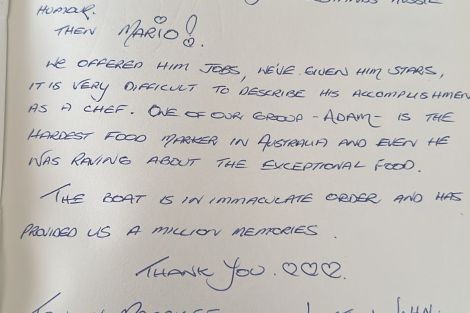 HUMOUR.
THEN MARIO!
WE OFFERED HIM JOBS, WE'VE GIVEN HIM STARS,
IT IS VERY DIFFICULT TO DESCRIBE HIS ACCOMPLISHMEN
AS A CHEF. ONE OF OUR GROUP - ADAM - IS THE
HARDEST FOOD MARKER IN AUSTRALIA AND EVEN HE
WAS RAVING ABOUT THE EXCEPTIONAL FOOD.
THE BOAT IS IN IMMACULATE ORDER AND HAS
PROVIDED US A MILLION MEMORIES.
THANK YOU. ♡♡♡.
JOHN.